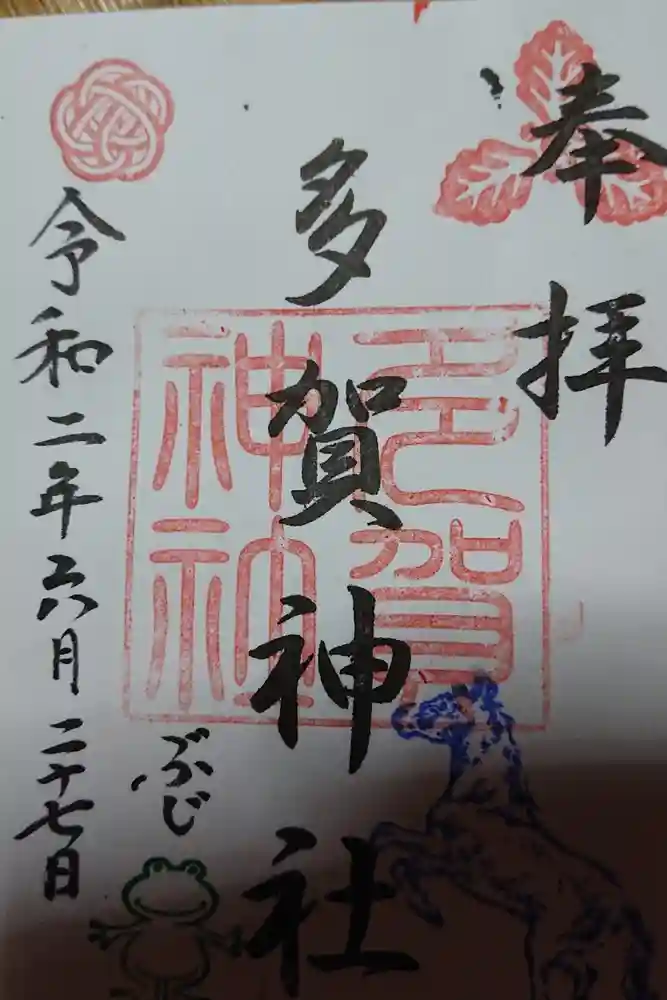 奉拝
多賀神社
多賀神社
ぶじ
令和二年六月二十七日